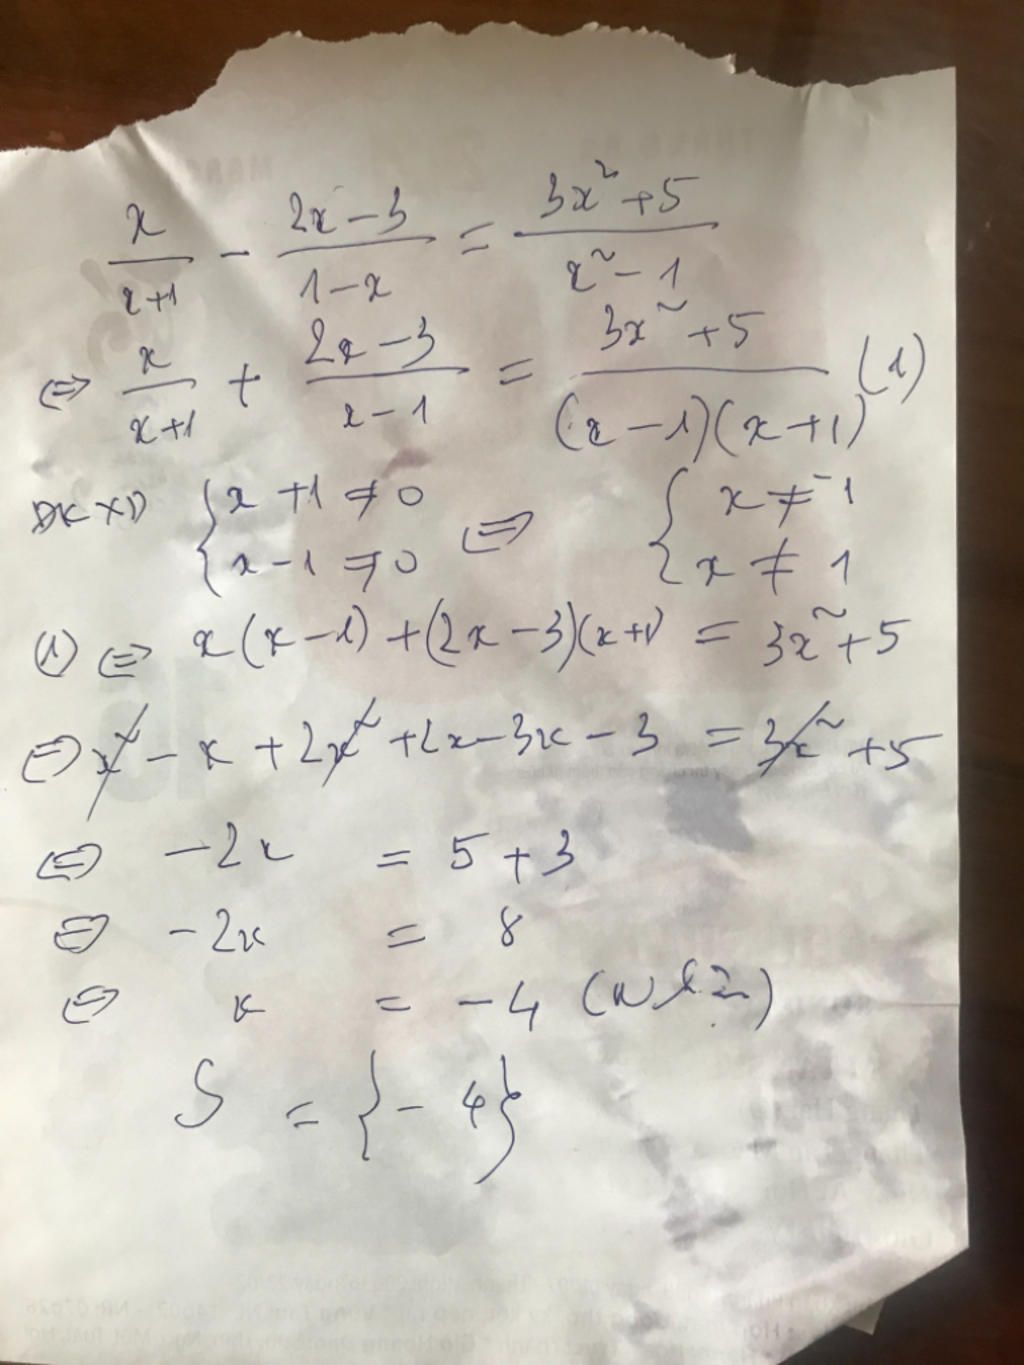 x/(x+1) - (2x-3)/(1-x) = (3x²+5)/(x²-1)
⇔ x/(x+1) + (2x-3)/(x-1) = (3x²+5)/((x-1)(x+1)) (1)
ĐKXĐ { x+1 ≠ 0 ; x-1 ≠ 0 ⇔ { x ≠ -1 ; x ≠ 1
(1) ⇔ x(x-1) + (2x-3)(x+1) = 3x²+5
⇔ x² - x + 2x² + 2x - 3x - 3 = 3x² + 5
⇔ -2x = 5 + 3
⇔ -2x = 8
⇔ x = -4 (Nhận)
S = {-4}